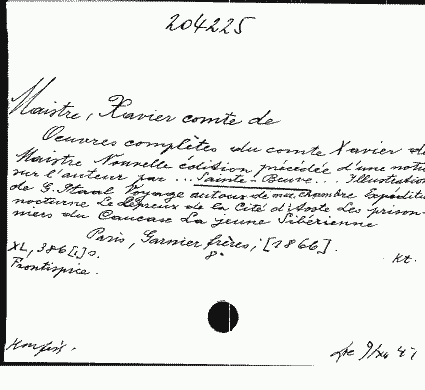 204225
Maistre, Xavier comte de
Oeuvres complètes du comte Xavier de
Maistre Nouvelle édition précédée d'une noti
sur l'auteur par ... Sainte-Beuve... Illustration
de G. Staal Voyage autour de ma chambre Expéditi
nocturne Le Lépreux de la Cité d'Aoste Les prison-
niers du Caucase La jeune Sibérienne
Paris, Garnier frères, [1866].
XL, 386 [1] s. 8°
Frontispice.
kt.